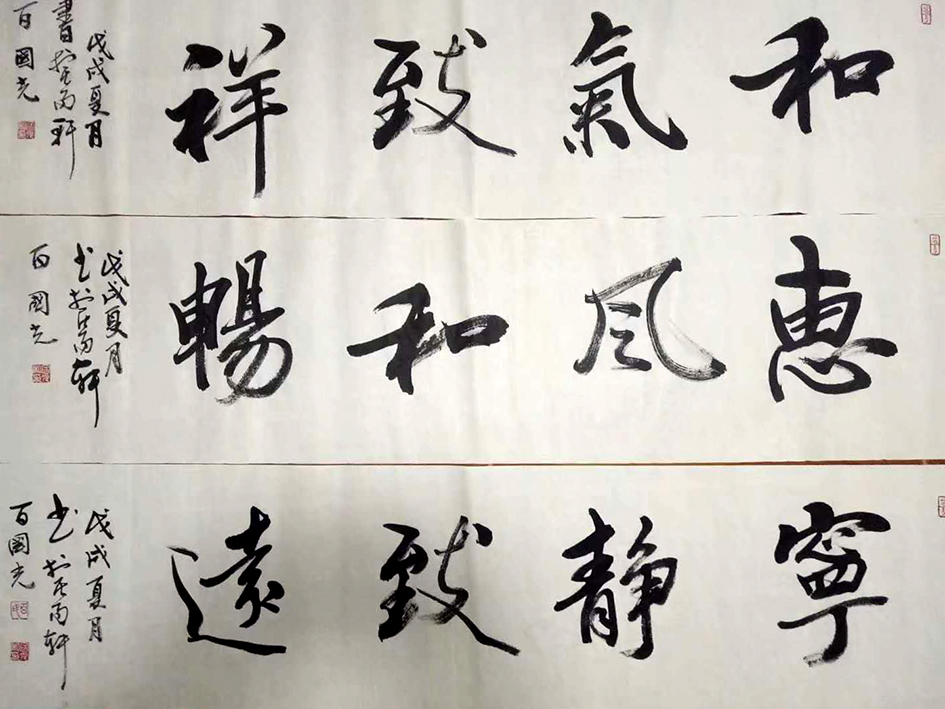 和氣致祥
戊戌夏月
書於
百國光
惠風和暢
戊戌夏月
书於
百國光
寧靜致遠
戊戌夏月
书於
百國光